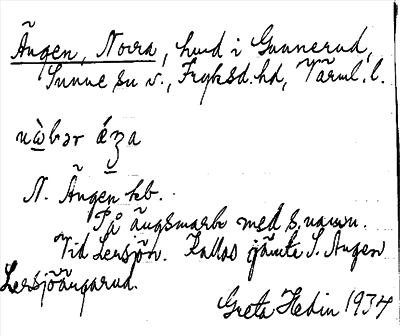 Ängen, Norra, hmd i Gunnerud,
Sunne sn v., Fryksd. hd, Värml. l.
N. Ängen hb.
På ängsmark med s. namn.
Vid Lersjön. Kallas jämte S. Ängen
Lersjöängarud.
Greta Hedin 1934